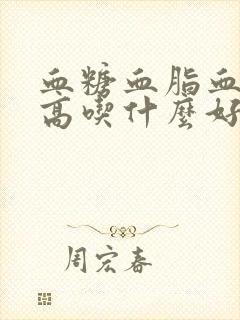 血糖血脂血
高喫什麼好
周宏春